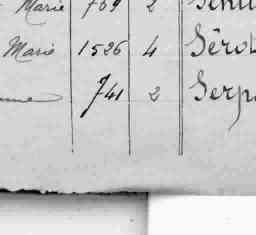 Marie 769 2
Marie 1526 4 Sérot
741 2 Serp